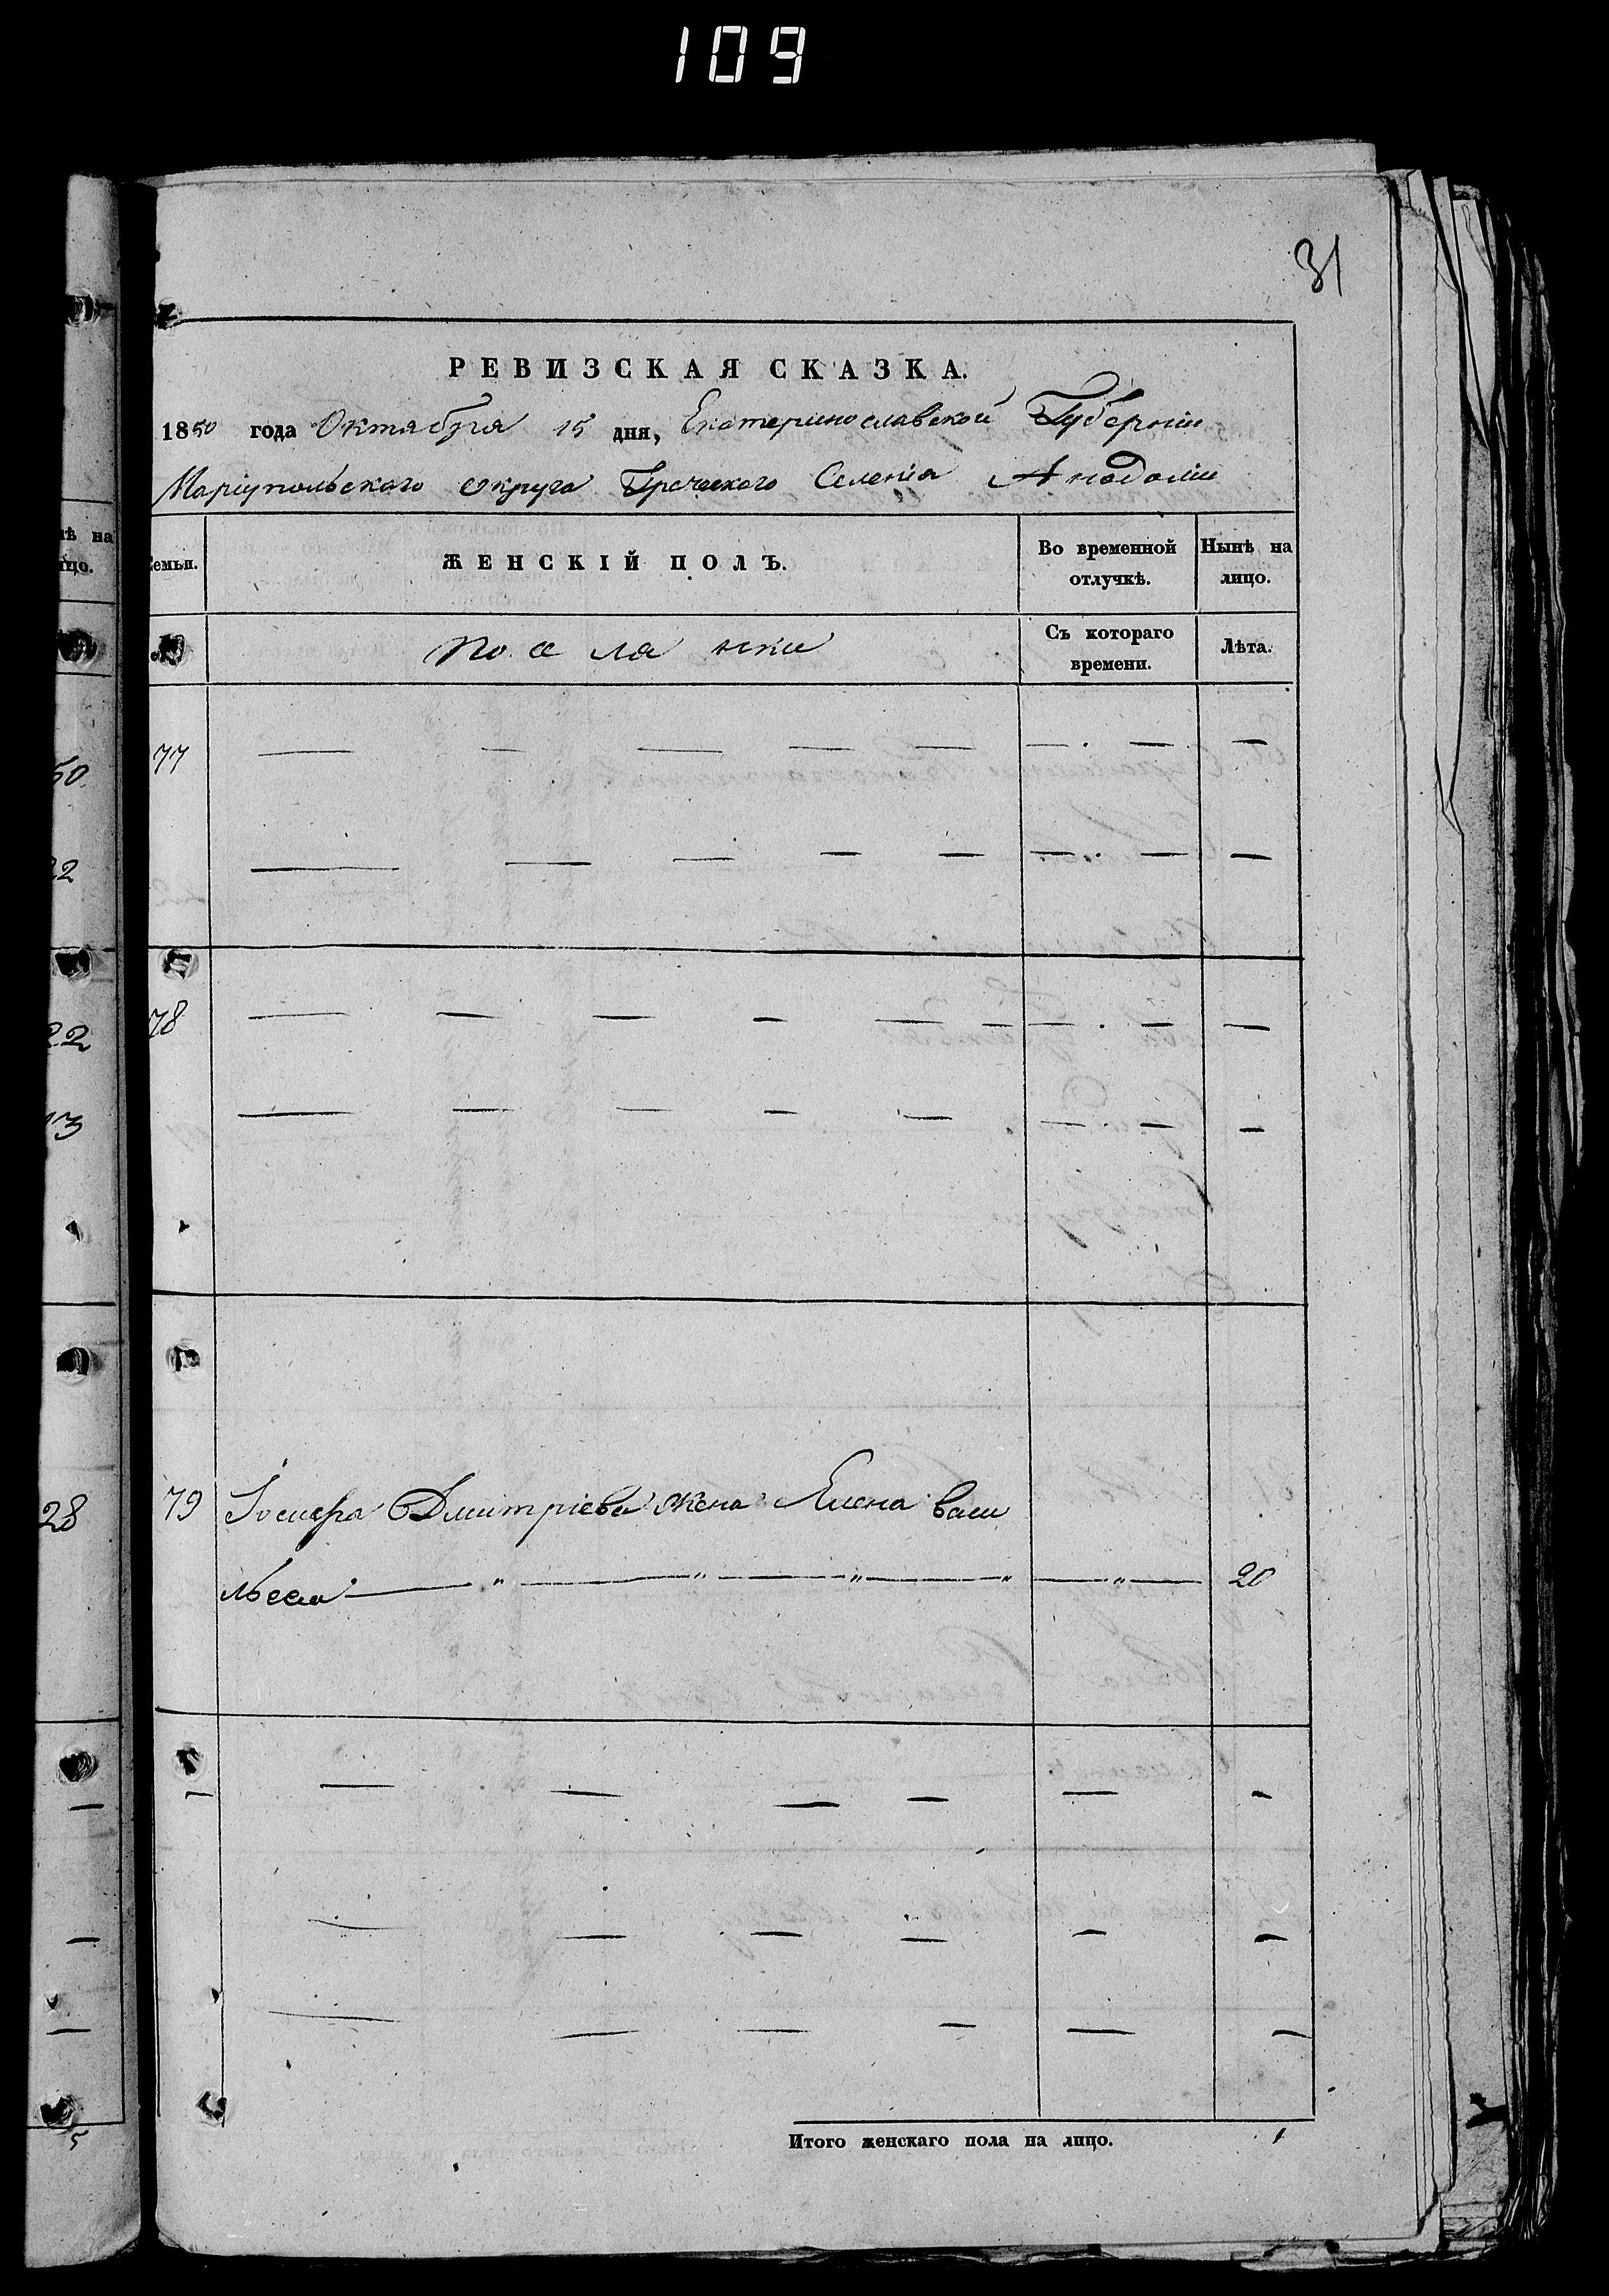 109
31
РЕВИЗСКАЯ СКАЗКА.
1850 года Октября 15 дня, Екатеринославской Губерніи
Маріупольскаго округа Греческого Селенія Анадоліи
нѣ на
лицо.
Семьи.
ЖЕНСКІЙ ПОЛЪ.
Во временной
отлучкѣ.
Нынѣ на
лицо.
поселянки
Съ котораго
времени.
Лѣта.
77
50
22
78
22
13
28
79 Іосифа Дмитріева жена Елена васи
льева — " — " — " — " — " — 20
5
Итого женскаго пола на лицо. 1